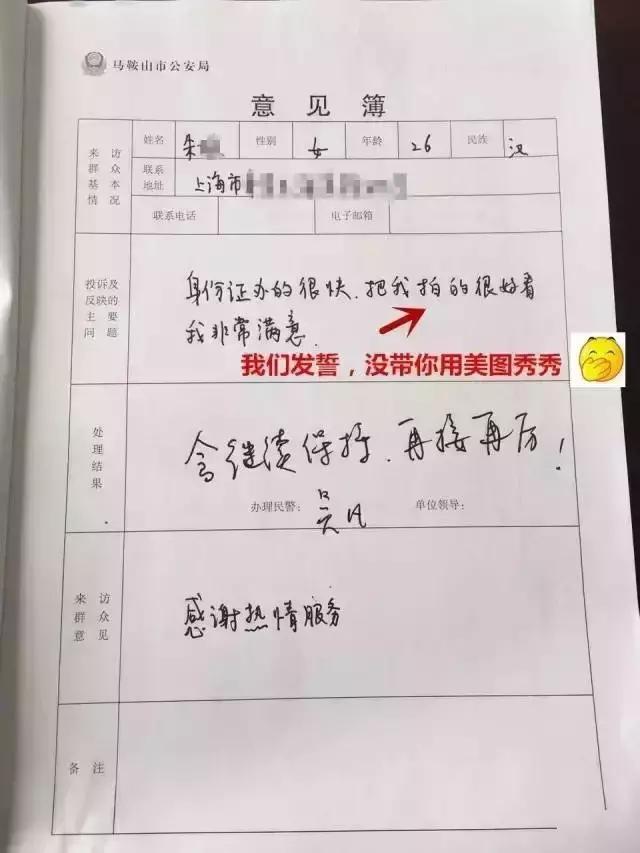 马鞍山市公安局
意见簿
来访群众基本情况
姓名 朱 性别 女 年龄 26 民族 汉
联系地址 上海市
联系电话 电子邮箱
投诉及反映的主要问题
身份证办的很快、把我拍的很好看
我非常满意.
我们发誓，没带你用美图秀秀
处理结果
会继续保持、再接再厉！
办理民警： 吴凡 单位领导：
来访群众意见
感谢热情服务
备注